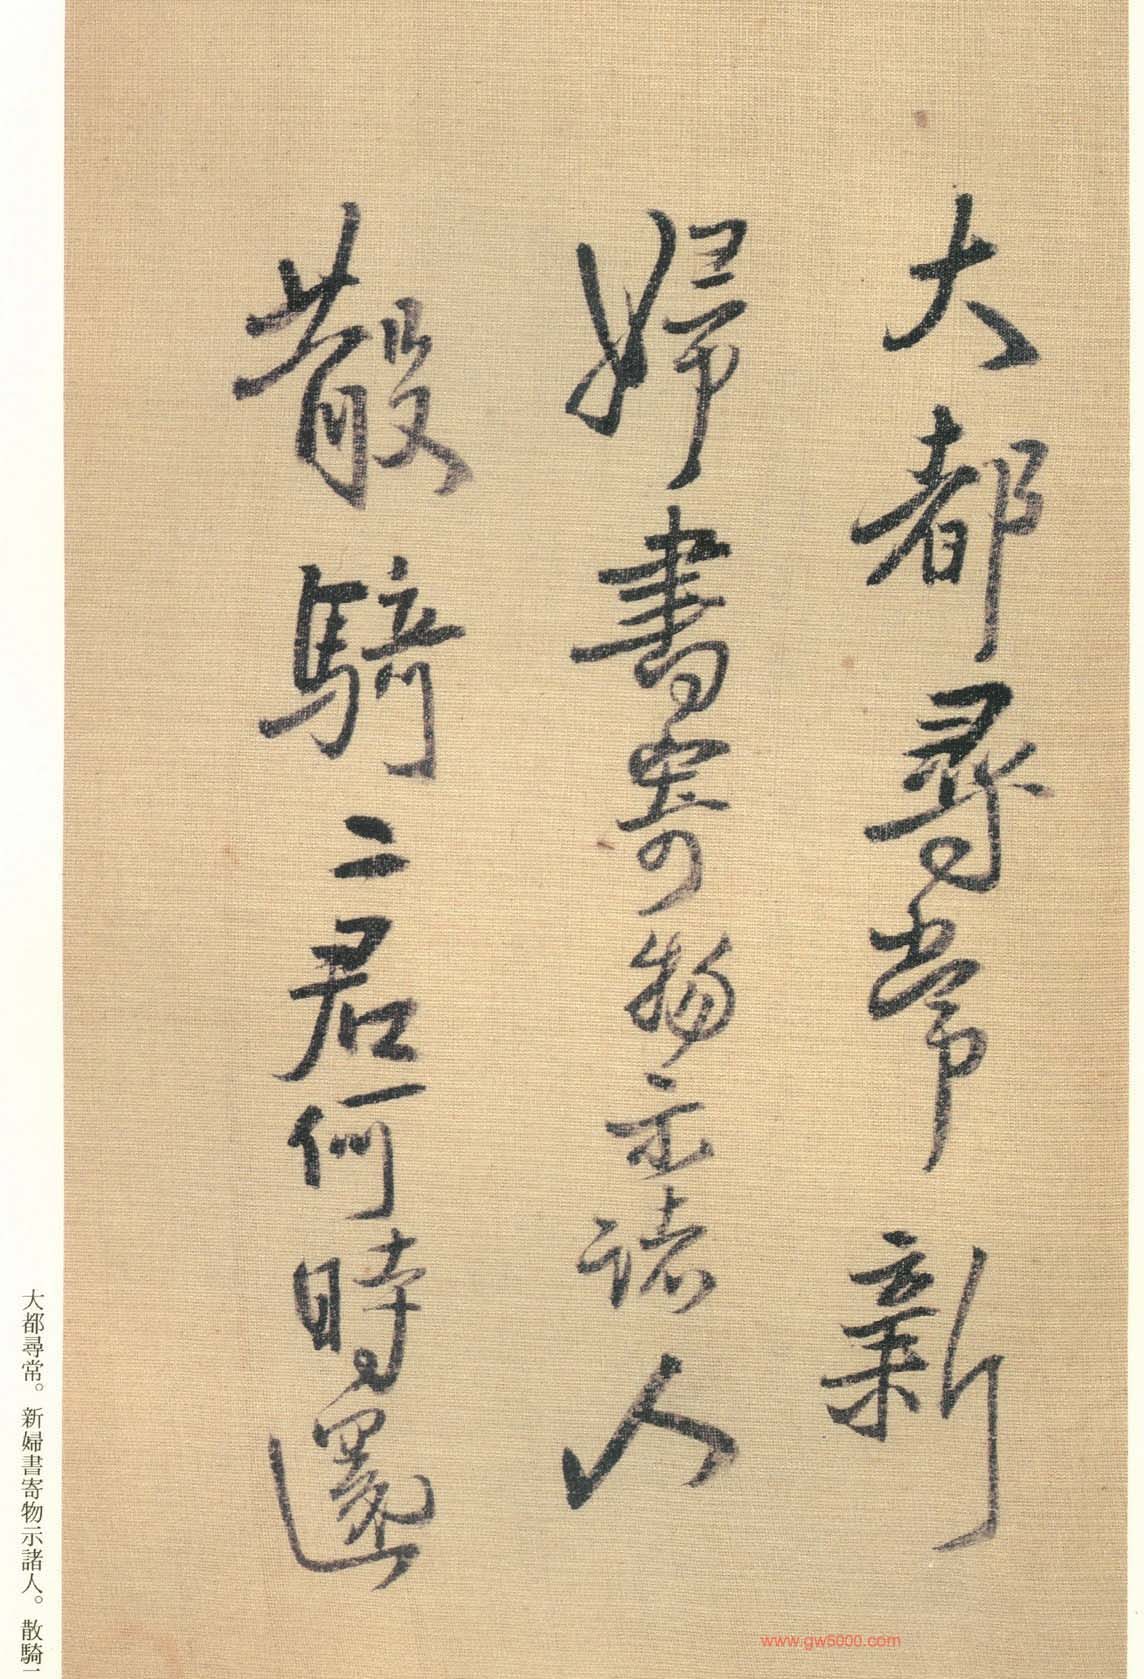 大都尋常新
婦書寄物示諸人
散騎二君何時還
大都尋常。新婦書寄物示諸人。散騎二
www.gw5000.com